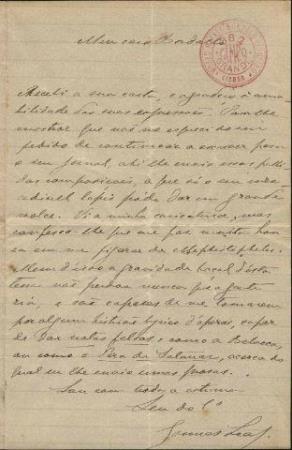 Meu caro Bordallo
LISBOA
Recebi a sua carta, e agradeço a ama-
bilidade das suas expressões. Para lhe
mostrar que não me esqueci do seu
pedido de continuar a escrever para
o seu jornal, ahi lhe envio essas
composições, a que só o seu
lapis póde dar um grande
realce. Vi a minha caricatura, mas
confesso-lhe que me faz muita hon-
ra em me figurar de Mephistopheles.
Alem d'isso a gravidade local d'esta
terra não perdoa nunca que a gente
ria, e são capazes de me tomarem
por algum histrião lyrico d'opera, capaz
de dar notas falsas, como a
ou como o de Salazar, ácerca do
qual lhe envio umas quadras.
Sou com toda a estima
Seu
Gomes Leal